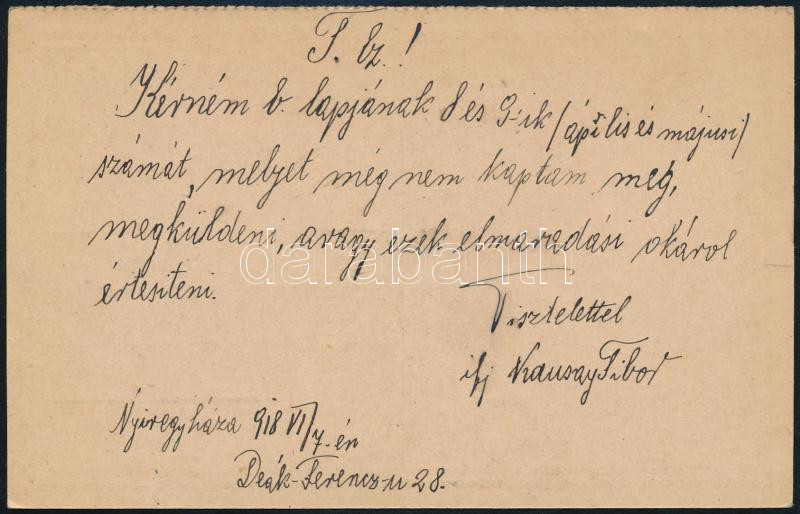 T. Cz.!
Kérném b. lapjának 8 és 9-ik /április és májusi/
számát, melyet még nem kaptam meg,
megküldeni, avagy ezek elmaradási okárol
darabanth
értesiteni.
Tisztelettel
ifj Kausay Tibor
Nyiregyháza 918 VI/7-én
Deák-Ferencz-u 28.